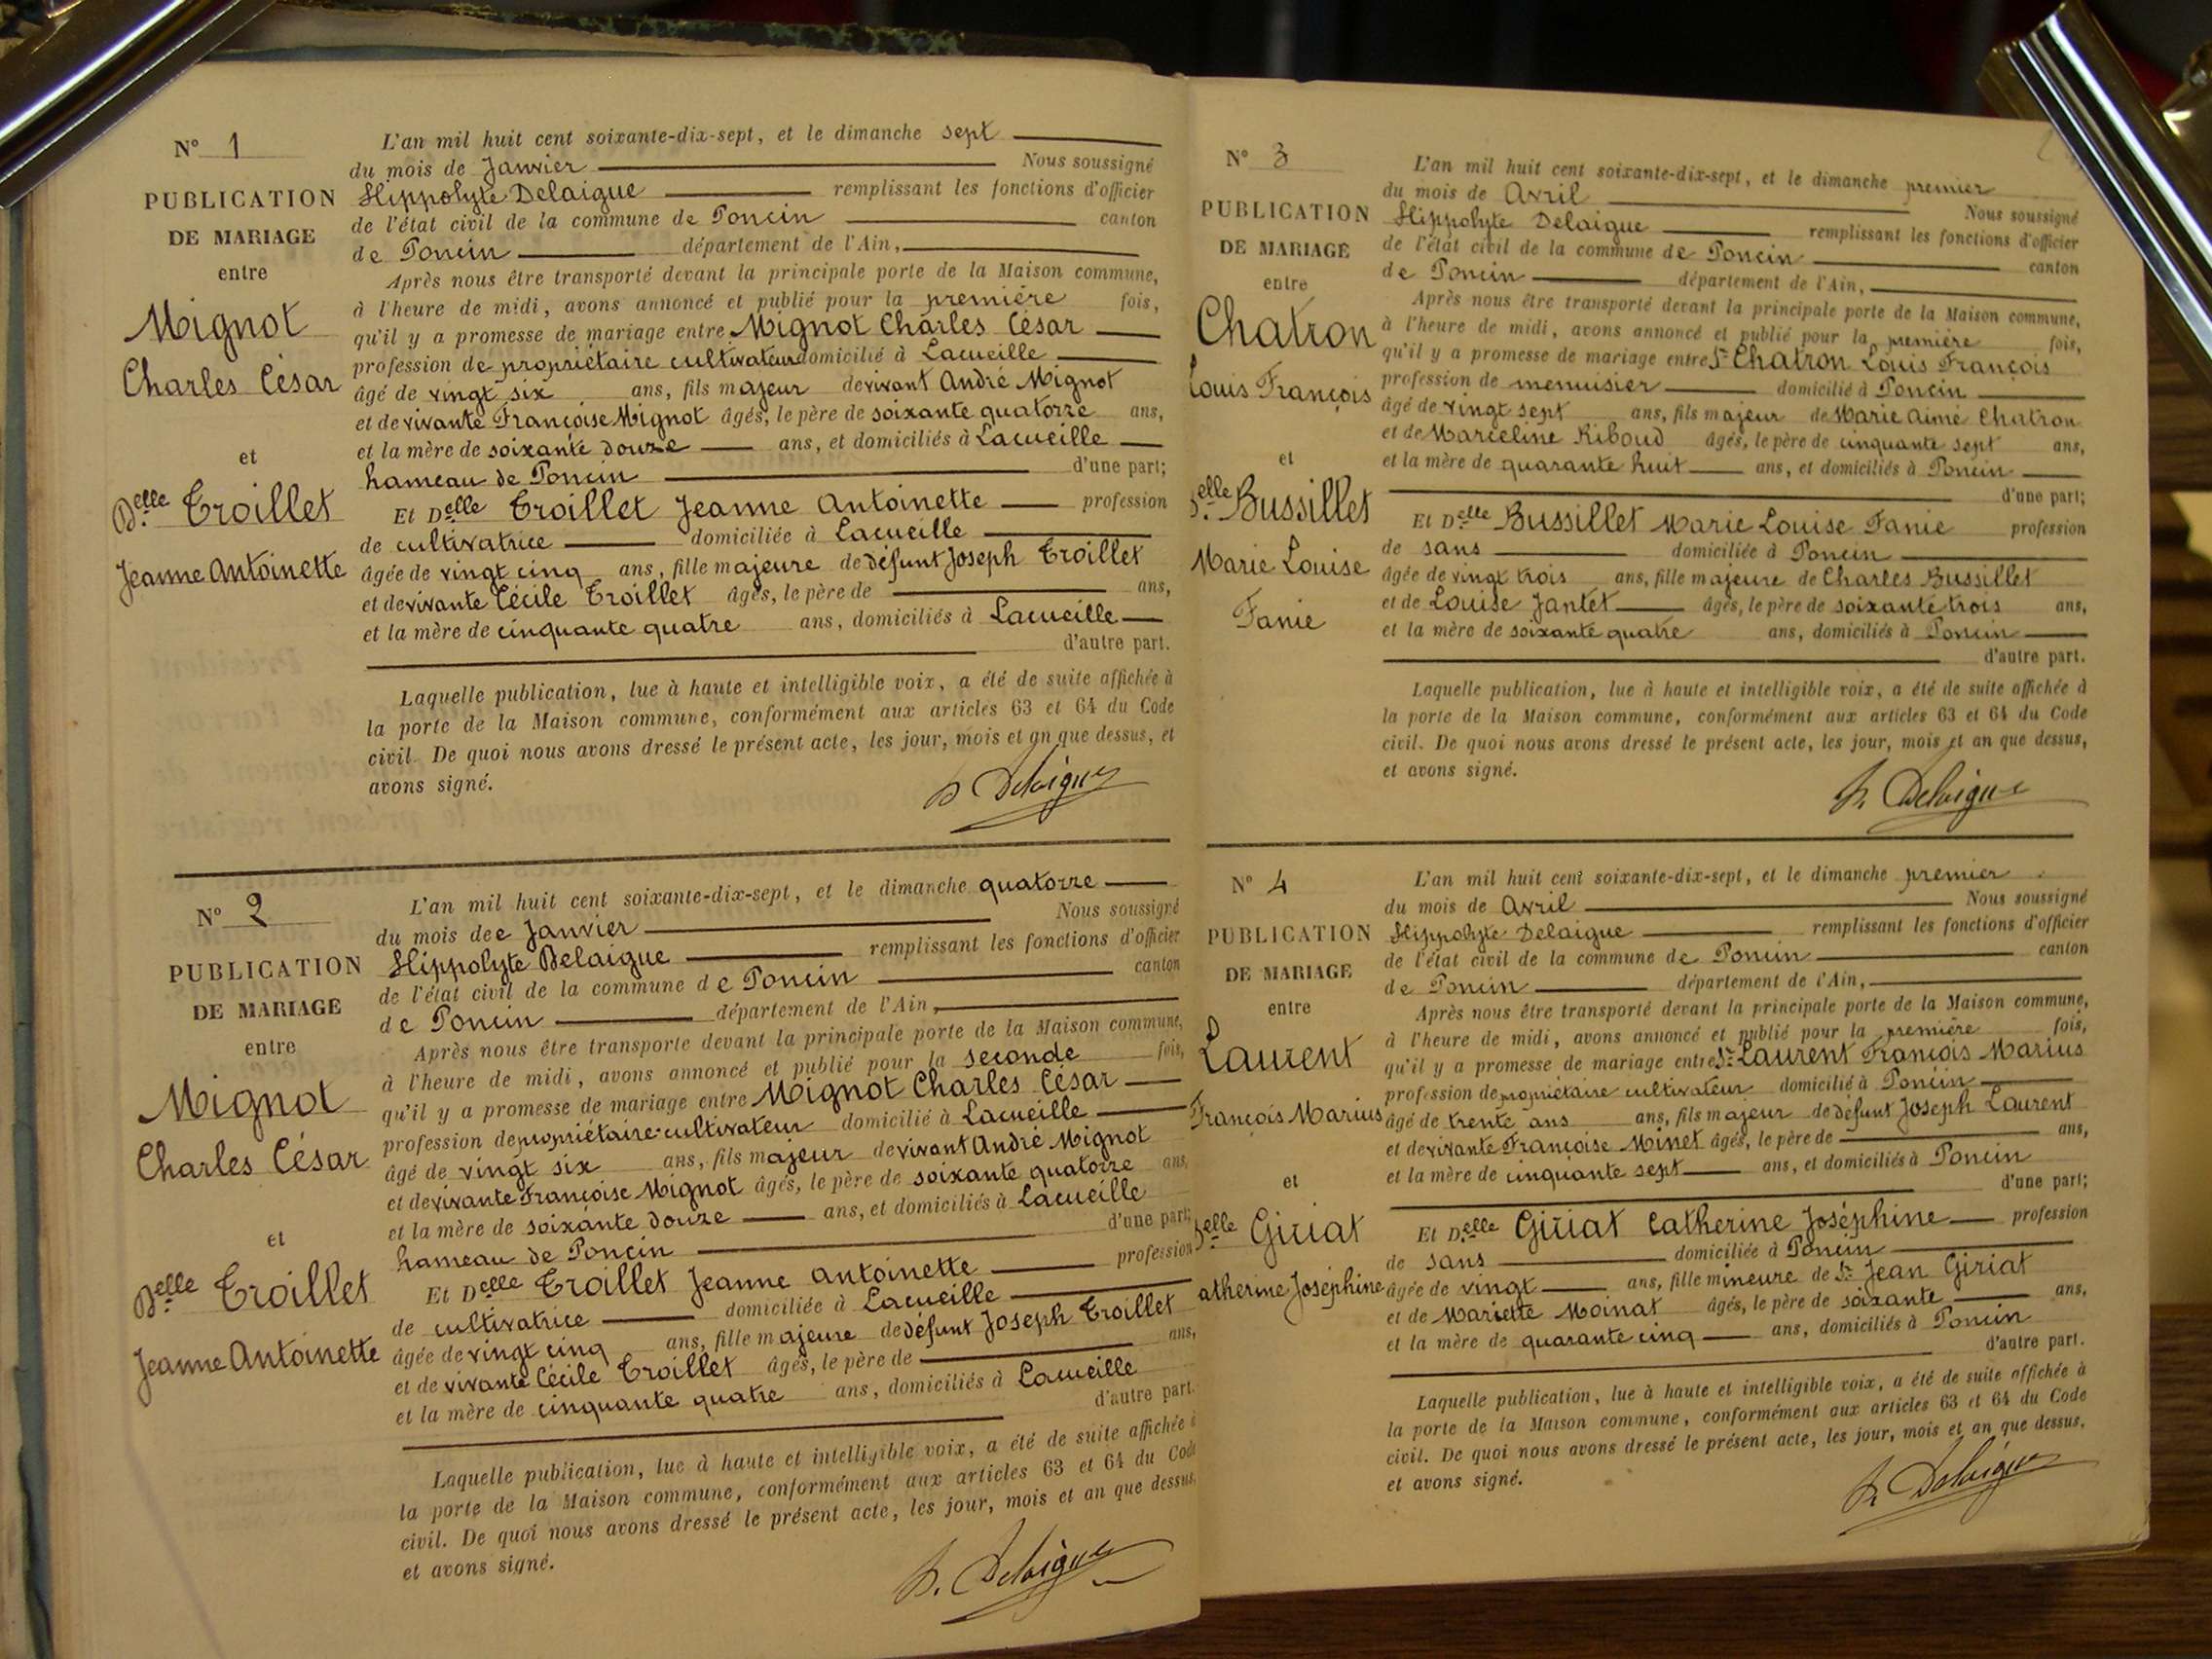 N° 1
PUBLICATION
DE MARIAGE
entre
Mignot
Charles César
et
Delle Troillet
Jeanne Antoinette
L'an mil huit cent soixante-dix-sept, et le dimanche sept
du mois de Janvier Nous soussigné
Hippolyte Delaigue remplissant les fonctions d'officier
de l'état civil de la commune de Poncin canton
de Poncin département de l'Ain,
Après nous être transporté devant la principale porte de la Maison commune,
à l'heure de midi, avons annoncé et publié pour la première fois,
qu'il y a promesse de mariage entre Mignot Charles César
profession de propriétaire cultivateur domicilié à Lacueille
âgé de vingt six ans, fils majeur de vivant André Mignot
et de vivante Françoise Mignot âgés, le père de soixante quatorze ans,
et la mère de soixante douze ans, et domiciliés à Lacueille
hameau de Poncin d'une part;
Et Delle Troillet Jeanne Antoinette profession
de cultivatrice domiciliée à Lacueille
âgée de vingt cinq ans, fille majeure de défunt Joseph Troillet
et de vivante Cécile Troillet âgés, le père de ans,
et la mère de cinquante quatre ans, domiciliés à Lacueille
d'autre part.
Laquelle publication, lue à haute et intelligible voix, a été de suite affichée à
la porte de la Maison commune, conformément aux articles 63 et 64 du Code
civil. De quoi nous avons dressé le présent acte, les jour, mois et an que dessus, et
avons signé.
Delaigue
N° 2
PUBLICATION
DE MARIAGE
entre
Mignot
Charles César
et
Delle Troillet
Jeanne Antoinette
L'an mil huit cent soixante-dix-sept, et le dimanche quatorze
du mois dee Janvier Nous soussigné
Hippolyte Delaigue remplissant les fonctions d'officier
de l'état civil de la commune de Poncin canton
de Poncin département de l'Ain,
Après nous être transporté devant la principale porte de la Maison commune,
à l'heure de midi, avons annoncé et publié pour la seconde fois,
qu'il y a promesse de mariage entre Mignot Charles César
profession de propriétaire cultivateur domicilié à Lacueille
âgé de vingt six ans, fils majeur de vivant André Mignot
et de vivante Françoise Mignot âgés, le père de soixante quatorze ans,
et la mère de soixante douze ans, et domiciliés à Lacueille
hameau de Poncin d'une part;
Et Delle Troillet Jeanne Antoinette profession
de cultivatrice domiciliée à Lacueille
âgée de vingt cinq ans, fille majeure de défunt Joseph Troillet
et de vivante Cécile Troillet âgés, le père de ans,
et la mère de cinquante quatre ans, domiciliés à Lacueille
d'autre part.
Laquelle publication, lue à haute et intelligible voix, a été de suite affichée à
la porte de la Maison commune, conformément aux articles 63 et 64 du Code
civil. De quoi nous avons dressé le présent acte, les jour, mois et an que dessus,
et avons signé.
h. Delaigue
N° 3
PUBLICATION
DE MARIAGE
entre
Chatron
Louis François
et
Delle Bussillet
Marie Louise
Fanie
L'an mil huit cent soixante-dix-sept, et le dimanche premier
du mois de Avril Nous soussigné
Hippolyte Delaigue remplissant les fonctions d'officier
de l'état civil de la commune de Poncin canton
de Poncin département de l'Ain,
Après nous être transporté devant la principale porte de la Maison commune,
à l'heure de midi, avons annoncé et publié pour la première fois,
qu'il y a promesse de mariage entre Sr Chatron Louis François
profession de menuisier domicilié à Poncin
âgé de vingt sept ans, fils majeur de Marie Aimé Chatron
et de Marceline Riboud âgés, le père de cinquante sept ans,
et la mère de quarante huit ans, et domiciliés à Poncin
d'une part;
Et Delle Bussillet Marie Louise Fanie profession
de sans domiciliée à Poncin
âgée de vingt trois ans, fille majeure de Charles Bussillet
et de Louise Jantet âgés, le père de soixante trois ans,
et la mère de soixante quatre ans, domiciliés à Poncin
d'autre part.
Laquelle publication, lue à haute et intelligible voix, a été de suite affichée à
la porte de la Maison commune, conformément aux articles 63 et 64 du Code
civil. De quoi nous avons dressé le présent acte, les jour, mois et an que dessus,
et avons signé.
h. Delaigue
N° 4
PUBLICATION
DE MARIAGE
entre
Laurent
François Marius
et
Delle Giriat
atherine Joséphine
L'an mil huit cent soixante-dix-sept, et le dimanche premier
du mois de Avril Nous soussigné
Hippolyte Delaigue remplissant les fonctions d'officier
de l'état civil de la commune de Poncin canton
de Poncin département de l'Ain,
Après nous être transporté devant la principale porte de la Maison commune,
à l'heure de midi, avons annoncé et publié pour la première fois,
qu'il y a promesse de mariage entre Sr Laurent François Marius
profession de propriétaire cultivateur domicilié à Poncin
âgé de trente ans ans, fils majeur de défunt Joseph Laurent
et de vivante Françoise Minet âgés, le père de ans,
et la mère de cinquante sept ans, et domiciliés à Poncin
d'une part;
Et Delle Giriat Catherine Joséphine profession
de sans domiciliée à Poncin
âgée de vingt ans, fille mineure de Sr Jean Giriat
et de Mariette Moinat âgés, le père de soixante ans,
et la mère de quarante cinq ans, domiciliés à Poncin
d'autre part.
Laquelle publication, lue à haute et intelligible voix, a été de suite affichée à
la porte de la Maison commune, conformément aux articles 63 et 64 du Code
civil. De quoi nous avons dressé le présent acte, les jour, mois et an que dessus,
et avons signé.
h. Delaigue